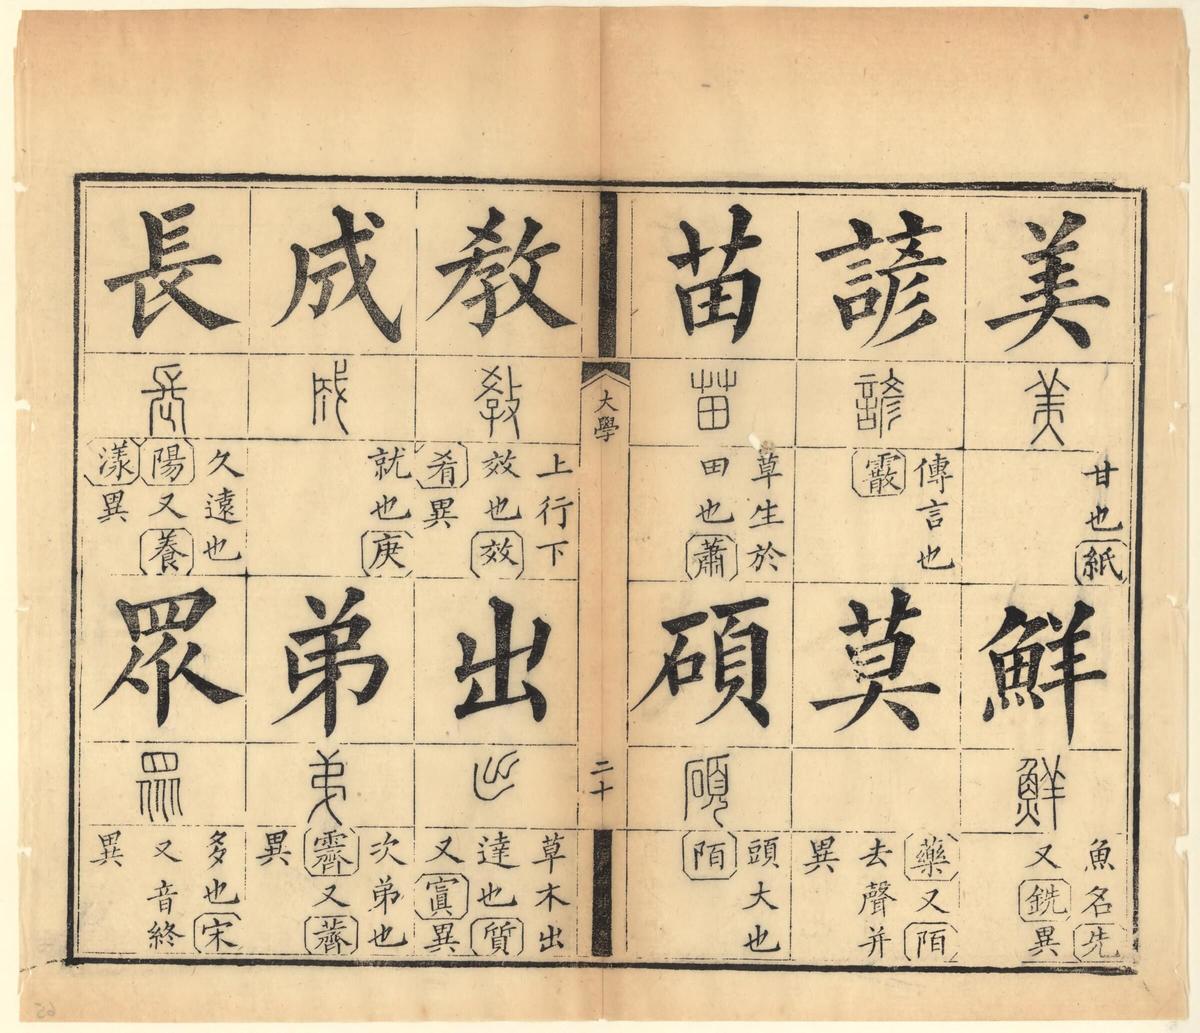 美
美
甘也紙
鮮
鮮
魚名先
又銑異
諺
諺
傳言也
霰
莫
藥又陌
去聲并
異
苗
苗
草生於
田也蕭
碩
碩
頭大也
陌
大學
二十
教
教
上行下
效也效
肴異
出
出
草木出
達也質
又寘異
成
成
就也庚
弟
弟
次弟也
霽又薺
異
長
長
久遠也
陽又養
漾異
眾
眾
多也宋
又音終
異